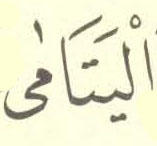 اَلْيَتَامٰى